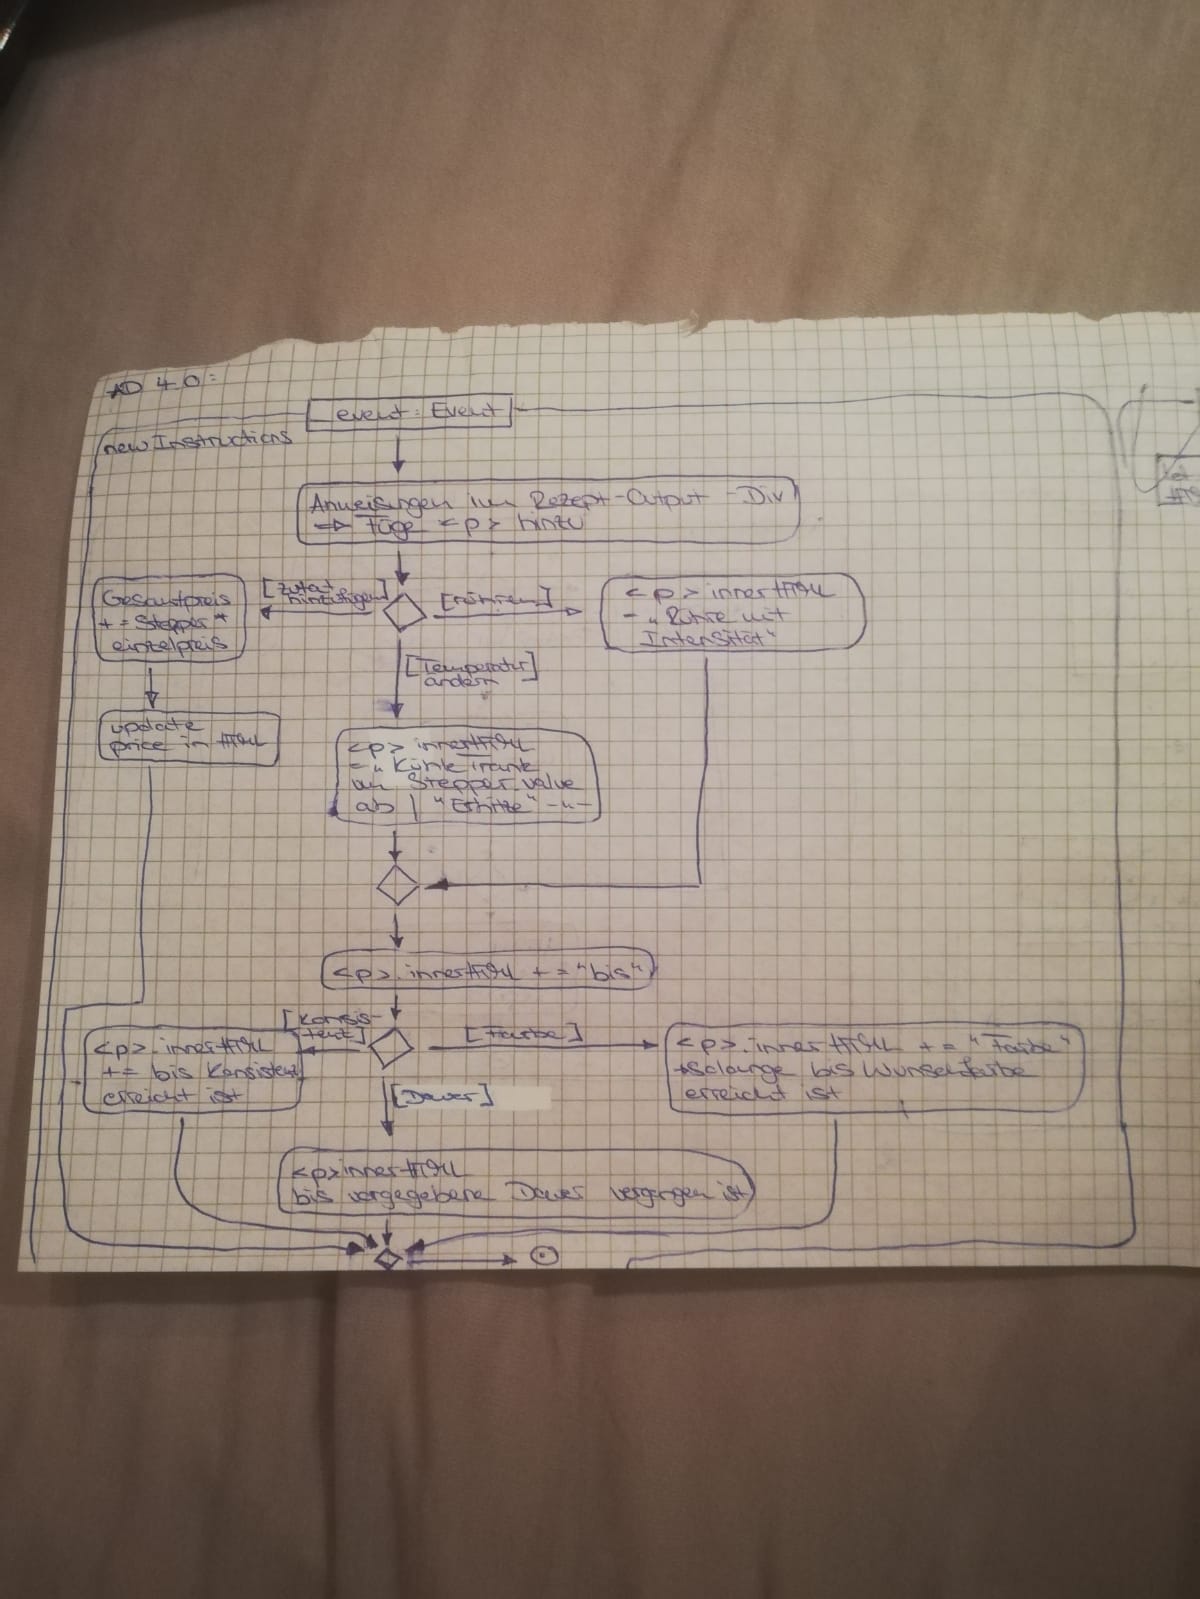 AD 4.0:
event: Event
newInstructions
Anweisungen im Rezept-Output-Div
=> füge <p> hinzu
[Zutat
hinzufügen]
[rühren]
Gesamtpreis
+ = Stepper *
einzelpreis
<p> innerHTML
= „Rühre mit
Intensität“
[Temperatur
ändern]
update
price in HTML
<p> innerHTML
= „Kühle Trank
um Stepper.value
ab | "Erhitze" -"-
<p>.innerHTML + = "bis"
[Konsis-
tent]
[Farbe]
<p>.innerHTML
+= bis Konsistenz
erreicht ist
<p>.innerHTML + = "Farbe"
solange bis Wunschfarbe
erreicht ist
[Dauer]
<p>innerHTML
bis vorgegebene Dauer vergangen ist